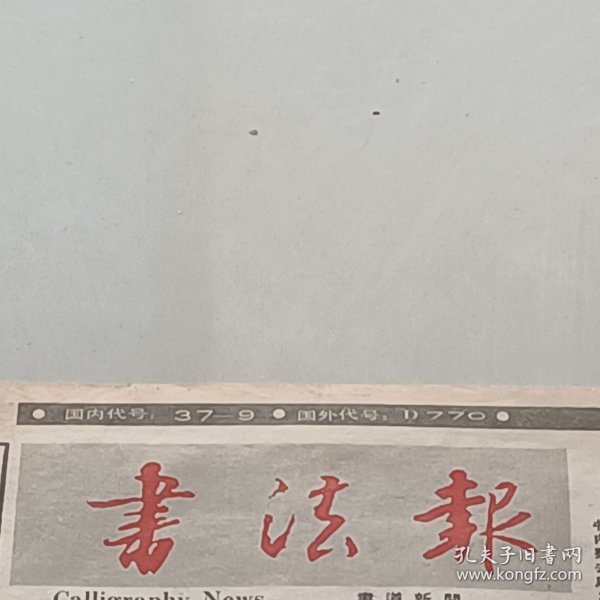 ● 国内代号：37—9 ● 国外代号：D770 ●
书法報
Calligraphy News 書道新聞
孔夫子旧书网
www.kongfz.com